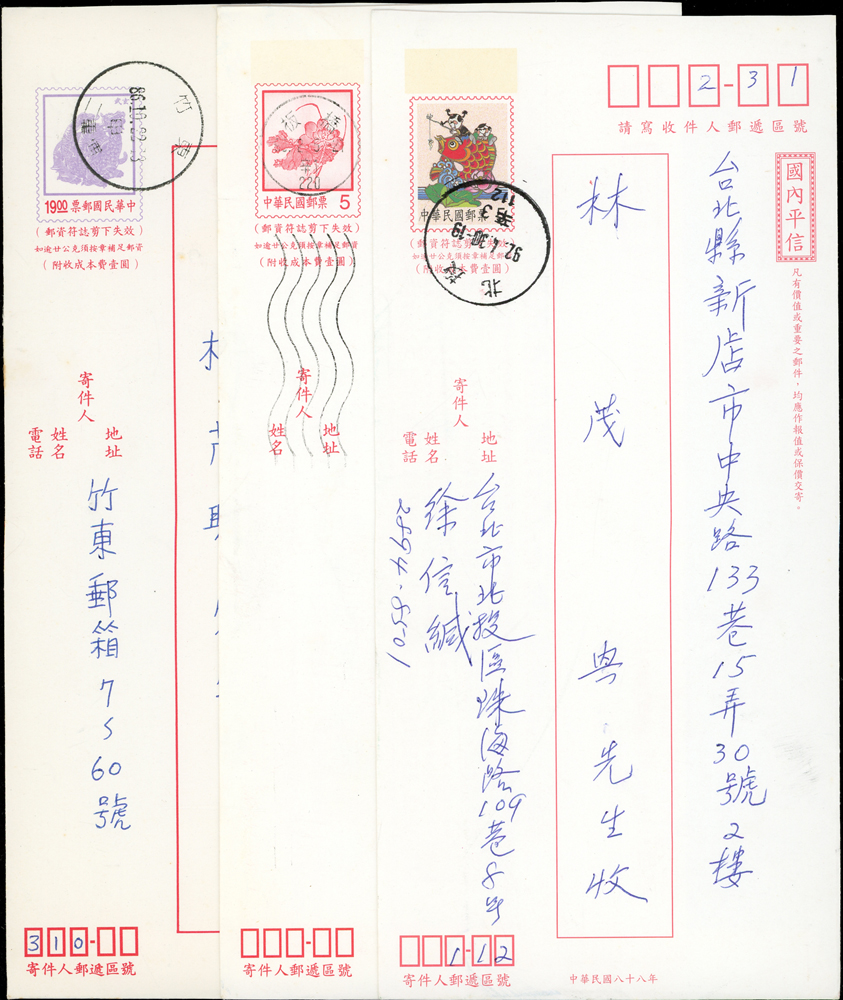 武士
19.00
中華民國郵票
(郵資符誌剪下失效)
如逾廿公克須按章補足郵資
(附收成本費壹圓)
竹東
寄件人
地址
姓名
電話
竹東郵箱7之60號
310-
寄件人郵遞區號
220
中華民國郵票 5
(郵資符誌剪下失效)
如逾廿公克須按章補足郵資
(附收成本費壹圓)
寄件人
地址
姓名
寄件人郵遞區號
2-31
請寫收件人郵遞區號
國內平信
凡有價值或重要之郵件,均應作報值或保價交寄。
台北縣新店市中央路133巷15弄30號2樓
林茂興先生收
中華民國郵票
(郵資符誌剪下失效)
如逾廿公克須按章補足郵資
(附收成本費壹圓)
92.4.30.-19
112
寄件人
地址
姓名
電話
台北市北投區珠海路109巷8號
徐信緘
2894-8501
1-12
寄件人郵遞區號
中華民國八十八年